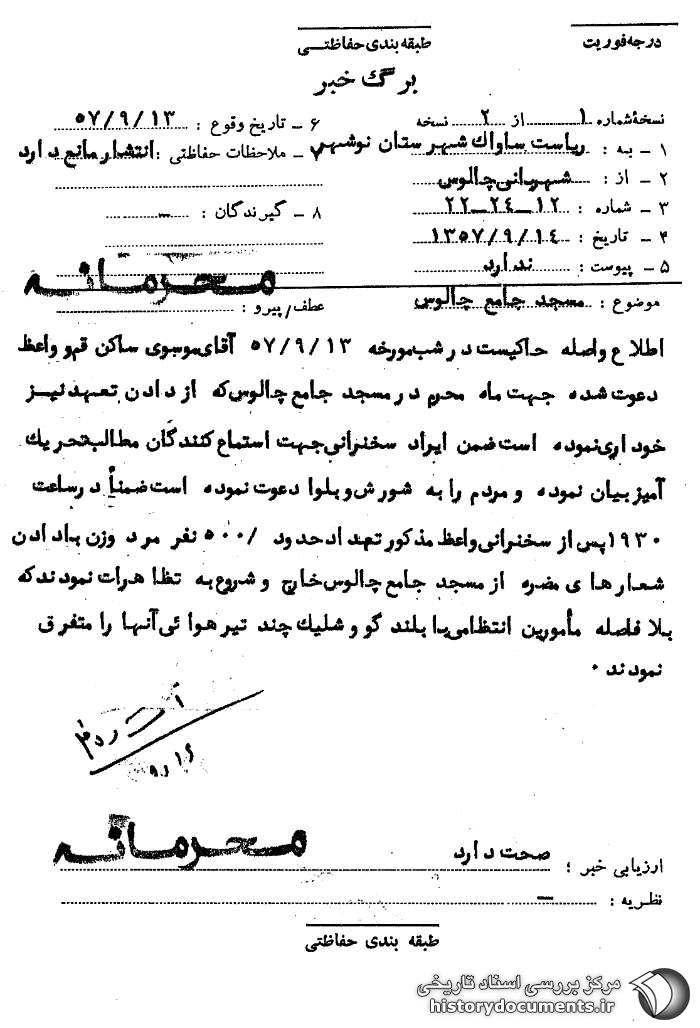 درجه فوریت
طبقه بندی حفاظتی
برگ خبر
نسخهٔ شماره ۱ از ۲ نسخه
۱ – به : ریاست ساواک شهرستان نوشهر
۲ – از : شهربانی چالوس
۳ – شماره : ۱۲–۲۴–۲۲
۴ – تاریخ : ۱۳۵۷/۹/۱۴
۵ – پیوست : ندارد
۶ – تاریخ وقوع : ۵۷/۹/۱۳
۷ – ملاحظات حفاظتی : انتشار مانع دارد
۸ – گیرندگان : –
محرمانه
موضوع : مسجد جامع چالوس
عطف/پیرو :
اطلاع واصله حاکیست در شب مورخه ۵۷/۹/۱۳ آقای موسوی ساکن قم و واعظ
دعوت شده جهت ماه محرم در مسجد جامع چالوس که از دادن تعهد نیز
خودداری نموده است ضمن ایراد سخنرانی جهت استماع کنندگان مطالب تحریک
آمیز بیان نموده و مردم را به شورش و بلوا دعوت نموده است ضمناً در ساعت
۱۹۳۰ پس از سخنرانی واعظ مذکور تعداد حدود /۵۰۰ نفر مرد وزن با دادن
شعارهای مضره از مسجد جامع چالوس خارج و شروع به تظاهرات نمودند که
بلافاصله مأمورین انتظامی با بلند گو و شلیک چند تیر هوائی آنها را متفرق
نمودند ۰
محرمانه
ارزیابی خبر : صحت دارد
نظریه : –
طبقه بندی حفاظتی
مرکز بررسی اسناد تاریخی
historydocuments.ir